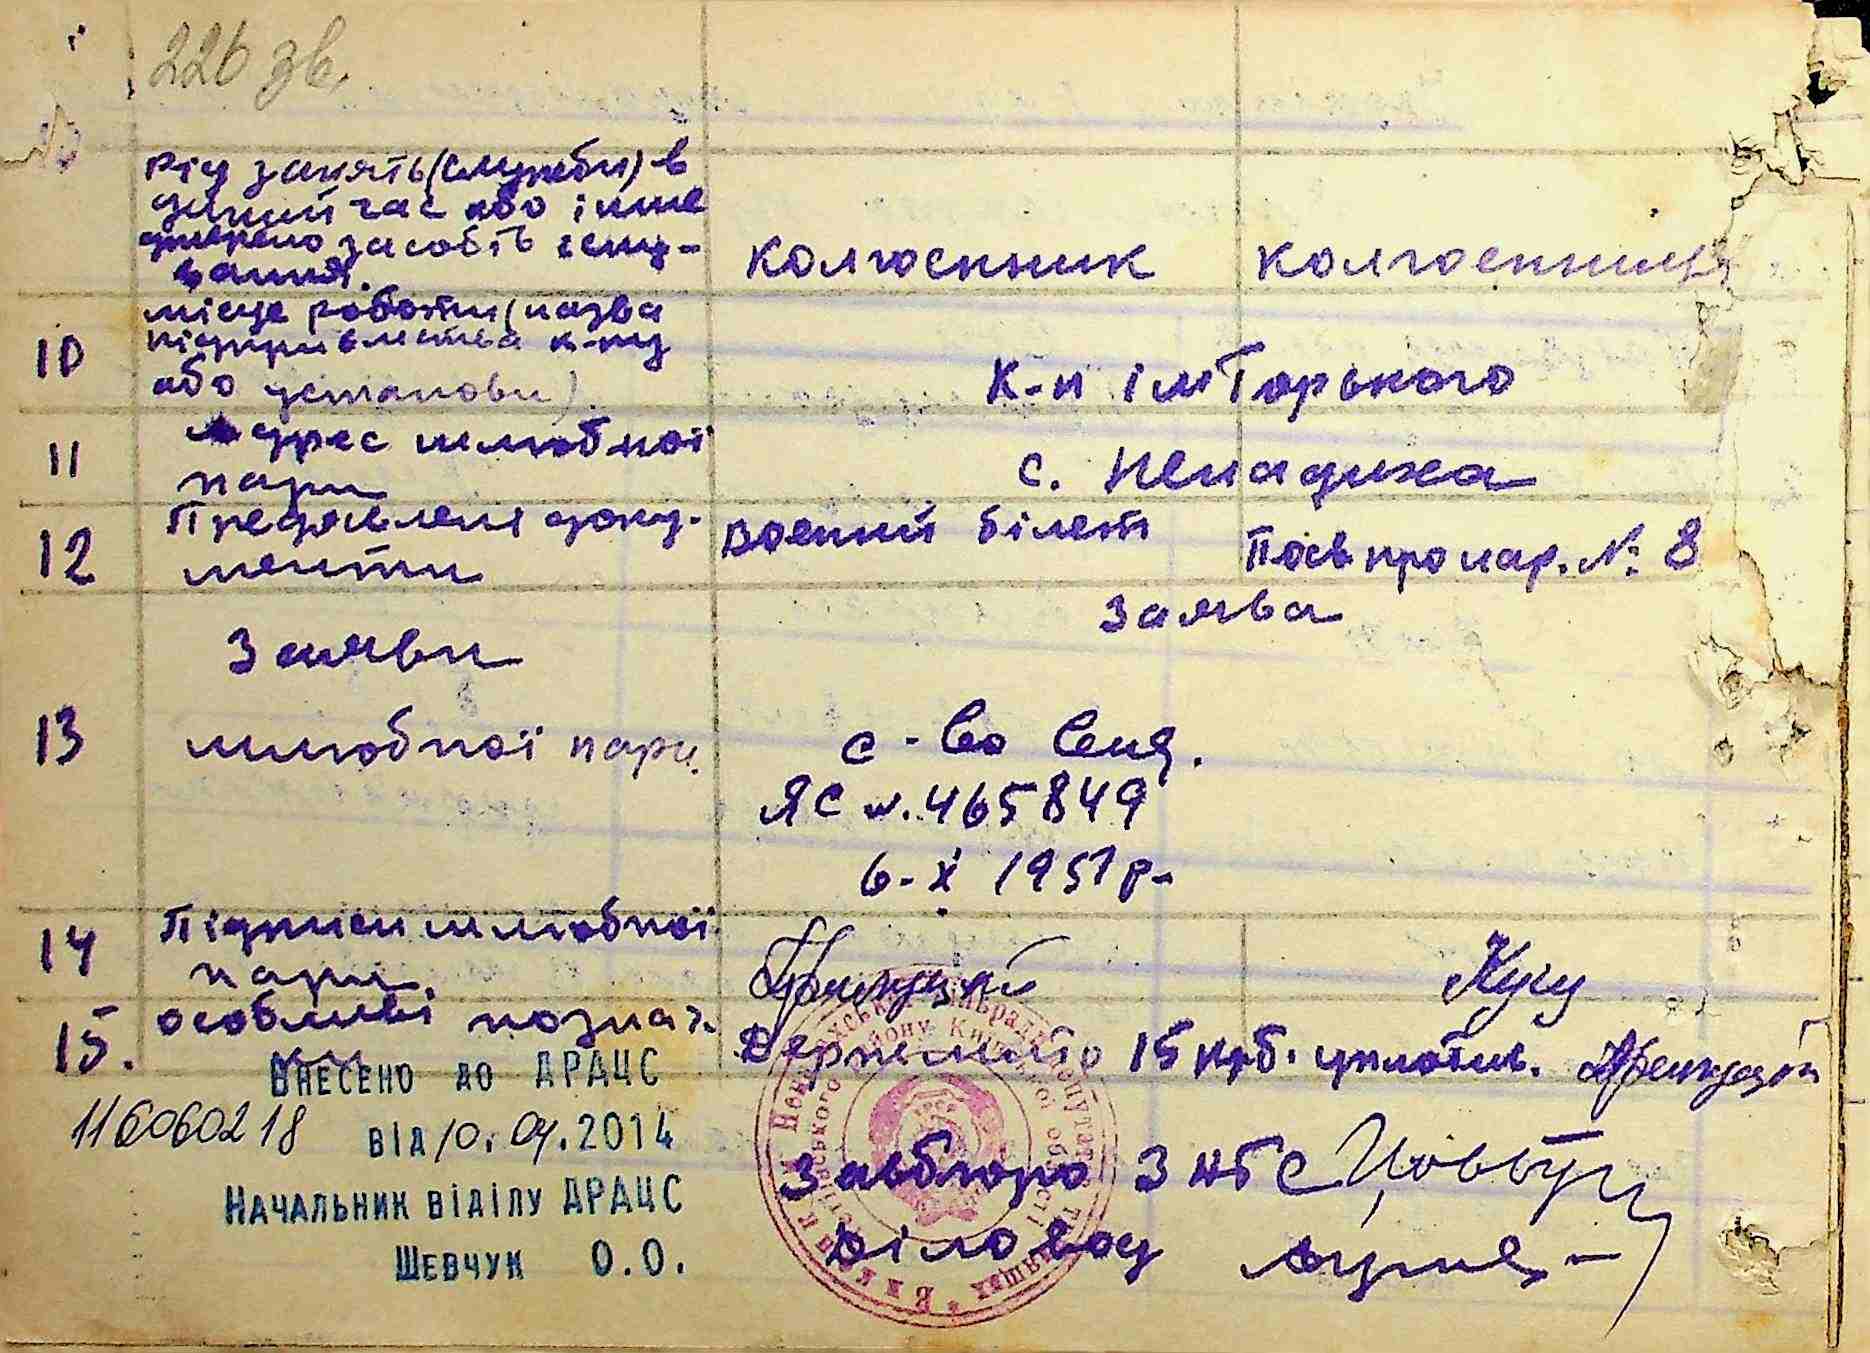 226 зв.
Рід занять (служби) в
даний час або інше
джерело засобів існу-
вання.
колгоспник колгоспниця
місце роботи (назва
10 підприємства к-пу
або установи).
К-п ім Горького
11 Адрес шлюбної
пари
с. Ненадиха
12 Предявлені доку-
менти
военний білет Посв про нар. № 8
Заява
Заяви
13 шлюбної пари.
с-во Вид.
ЯС №. 465849
6-X 1951 р.
14 Підписи шлюбної
пари.
15. особливі познач.
Держмито 15 крб. уплотив.
Внесено до ДРАЦС
1160602 18 від 10.04.2014
Начальник відділу ДРАЦС
Шевчук О.О.
Завбюро ЗАГС
Діловод